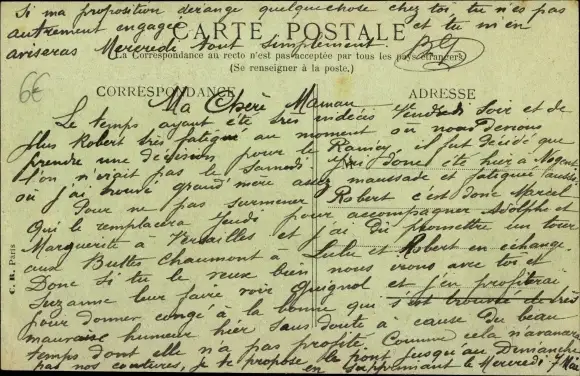 Si ma proposition dérange quelquechose chez toi tu n'es pas
autrement engagée et tu m'en
CARTE POSTALE
aviseras Mercredi tout simplement. BG
La Correspondance au recto n'est pas acceptée par tous les pays étrangers
(Se renseigner à la poste.)
6€
CORRESPONDANCE
ADRESSE
Ma Chère Maman
Le temps ayant été très indécis Vendredi soir et de
plus Robert très fatigué au moment où nous devions
prendre une décision pour le Raincy il fut décidé que
l'on n'irait pas le Samedi. J'ai donc été hier à Nogent
où j'ai trouvé grand'mère assez maussade et fatiguée aussi
Pour ne pas surmener Robert c'est donc Marcel
qui le remplacera Jeudi pour accompagner Adolphe et
Marguerite à Versailles et j'ai dû promettre un tour
aux Buttes Chaumont à Lulu et Robert en échange.
Donc si tu le veux bien nous irons avec toi et
Suzanne leur faire voir Guignol et j'en profiterai
pour donner congé à la bonne qui s'est trouvée de très
mauvaise humeur hier sans doute à cause du beau
temps dont elle n'a pas profité. Comme cela n'avancera
pas nos coutures, je te propose le pont jusqu'au Dimanche
en supprimant le Mercredi. 7 Mai
C. B. Paris